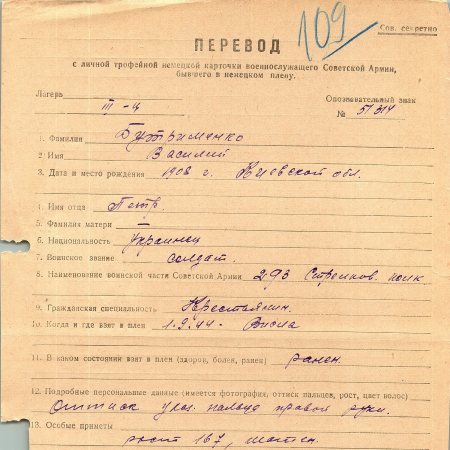 109
Сов. секретно
ПЕРЕВОД
с личной трофейной немецкой карточки военнослужащего Советской Армии,
бывшего в немецком плену.
Лагерь III-Ц
Опознавательный знак
№ 51314
1. Фамилия Бутрименко
2 Имя Василий
3. Дата и место рождения 1908 г. Киевской обл.
4. Имя отца Петр
5. Фамилия матери —
6. Национальность Украинец
7. Воинское звание солдат.
8. Наименование воинской части Советской Армии 293 Стрелков. полк
9. Гражданская специальность Крестьянин.
10. Когда и где взят в плен 1.9.44. Висла
11. В каком состоянии взят в плен (здоров, болен, ранен) ранен.
12. Подробные персональные данные (имеется фотография, оттиск пальцев, рост, цвет волос)
Оттиск указ. пальца правой руки.
13. Особые приметы
рост 167,